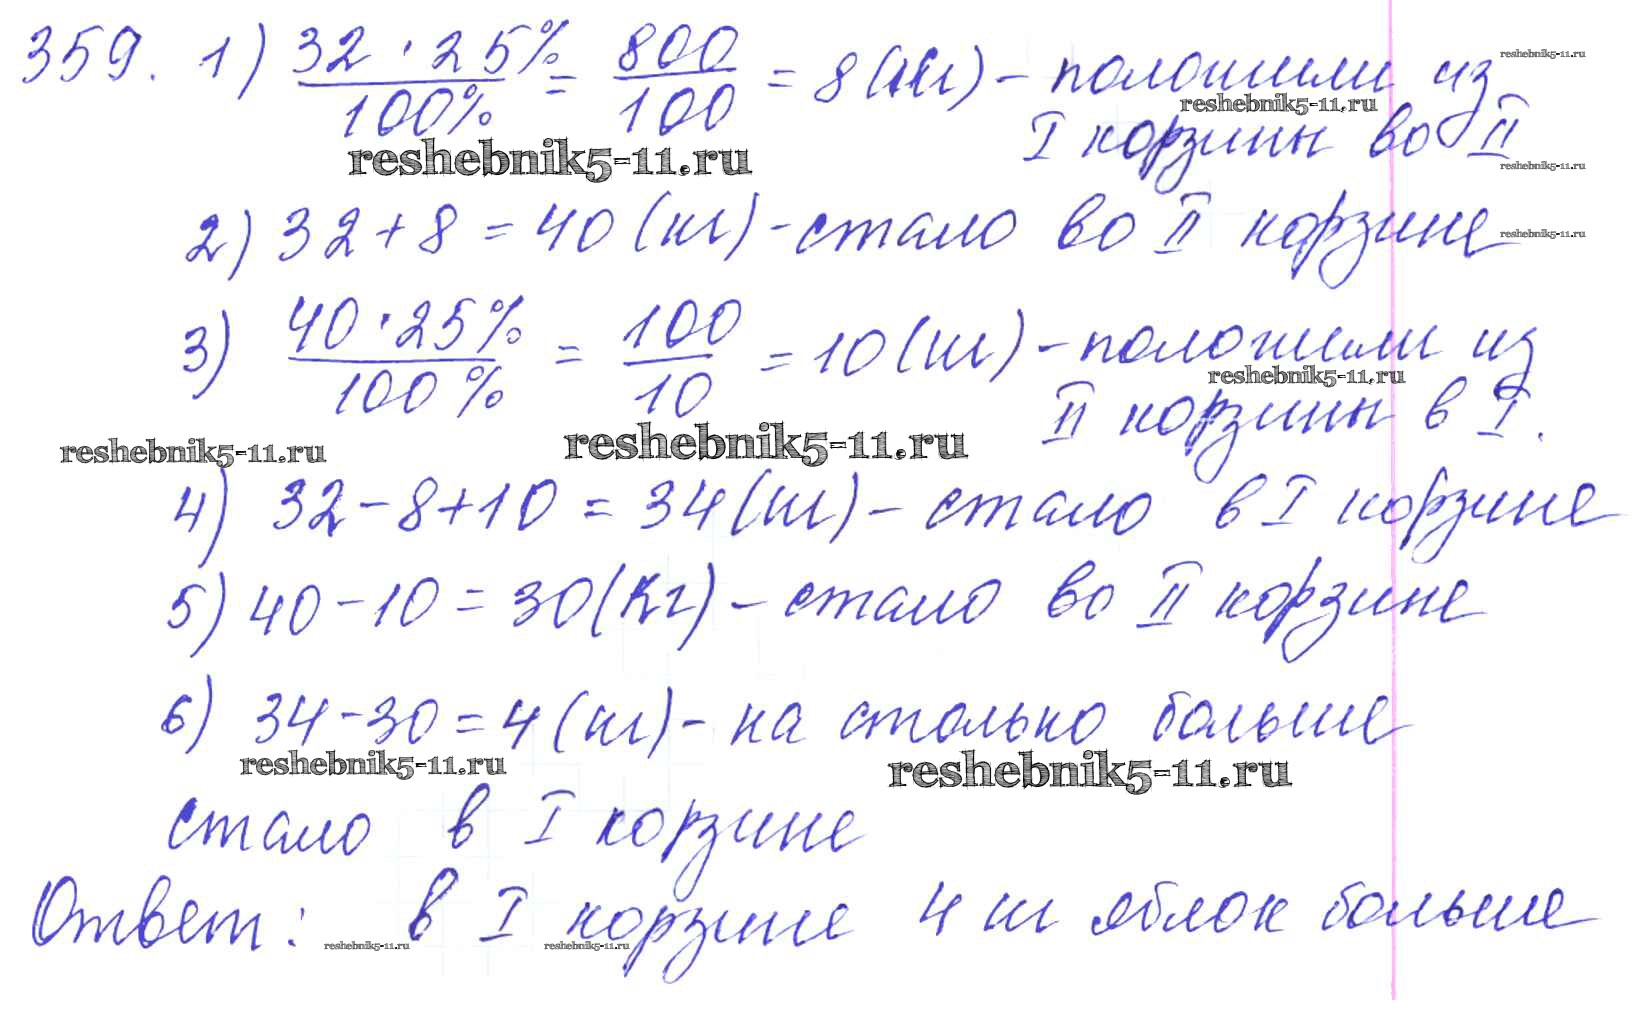 359. 1) 32 · 25% / 100% = 800 / 100 = 8 (кг) - положили из
reshebnik5-11.ru
reshebnik5-11.ru
I корзины во II
reshebnik5-11.ru
reshebnik5-11.ru
2) 32 + 8 = 40 (кг) - стало во II корзине
reshebnik5-11.ru
3) 40 · 25% / 100% = 100 / 10 = 10 (кг) - положили из
reshebnik5-11.ru
II корзины в I.
reshebnik5-11.ru
reshebnik5-11.ru
4) 32 - 8 + 10 = 34 (кг) - стало в I корзине
5) 40 - 10 = 30 (кг) - стало во II корзине
6) 34 - 30 = 4 (кг) - на столько больше
reshebnik5-11.ru
reshebnik5-11.ru
стало в I корзине
Ответ: в I корзине 4 кг яблок больше
reshebnik5-11.ru
reshebnik5-11.ru